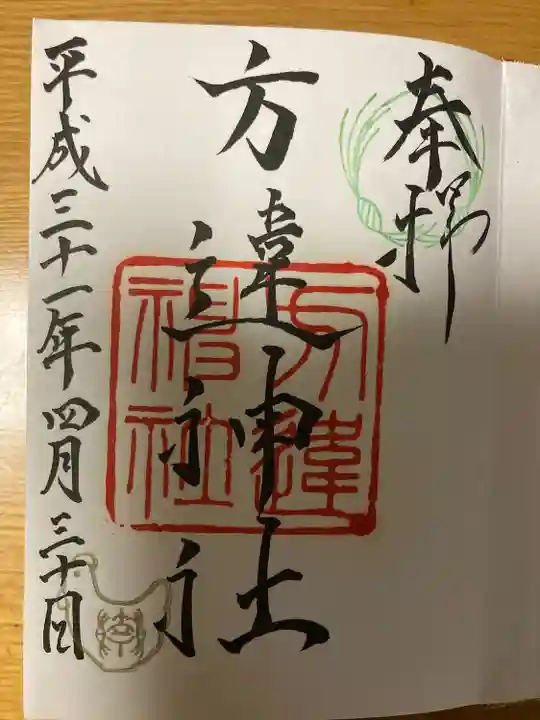 奉拝
方違神社
方違
神社
平成三十一年四月三十日